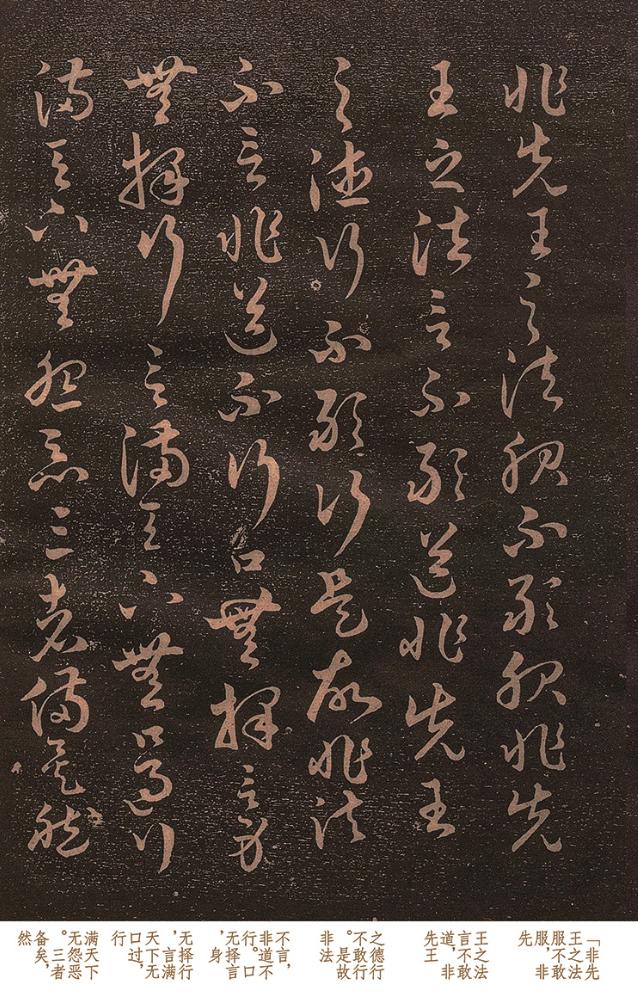 非先王之法服不敢服非先
王之法言不敢道非先王
之德行不敢行是故非法
不言非道不行口無擇言身
無擇行言滿天下無口過行
滿天下無怨惡三者備矣然
「非先
王之法
服不敢
服，非
先
王之法
言不敢
道，非
先王
之德行
不敢行
。是故
非法
不言，
非道不
行。口
无择言
，身
无择行
，言满
天下无
口过，
行
满天下
无怨恶
。三者
备矣，
然